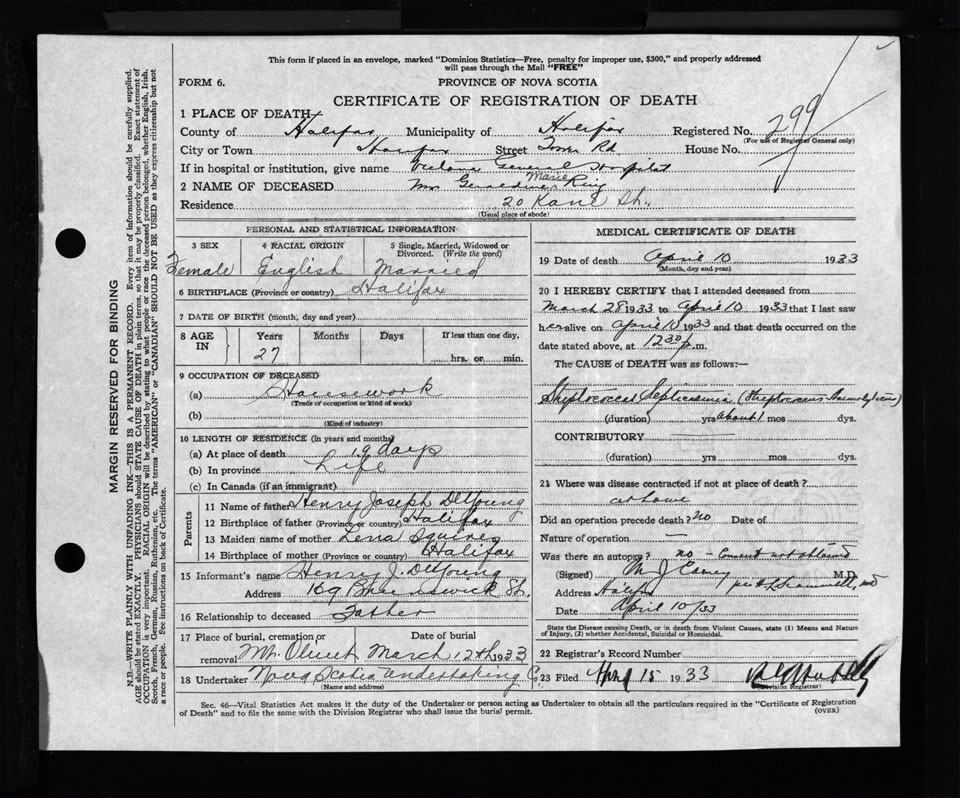 This form if placed in an envelope, marked "Dominion Statistics—Free, penalty for improper use, $300," and properly addressed
will pass through the Mail "FREE"
FORM 6. PROVINCE OF NOVA SCOTIA
CERTIFICATE OF REGISTRATION OF DEATH
1 PLACE OF DEATH
County of Halifax Municipality of Halifax Registered No. 299
(For use of Registrar General only)
City or Town Halifax Street Tower Rd House No.
If in hospital or institution, give name Victoria General Hospital
Marie
2 NAME OF DECEASED Mrs Geraldine Ring
Residence 20 Kane St.,
(Usual place of abode)
PERSONAL AND STATISTICAL INFORMATION
3 SEX 4 RACIAL ORIGIN 5 Single, Married, Widowed or
Divorced. (Write the word)
Female English Married
6 BIRTHPLACE (Province or country) Halifax
7 DATE OF BIRTH (month, day and year)
8 AGE IN Years Months Days If less than one day,
27 hrs. or min.
9 OCCUPATION OF DECEASED
(a) Housework
(Trade or occupation or kind of work)
(b)
(Kind of industry)
10 LENGTH OF RESIDENCE (in years and months)
(a) At place of death 19 days
(b) In province Life
(c) In Canada (if an immigrant)
Parents
11 Name of father Henry Joseph DeYoung
12 Birthplace of father (Province or country) Halifax
13 Maiden name of mother Lena Squires
14 Birthplace of mother (Province or country) Halifax
15 Informant's name Henry J. DeYoung
Address 169 Brunswick St.
16 Relationship to deceased Father
17 Place of burial, cremation or Date of burial
removal Mt Olivet March 12th 1933
18 Undertaker Nova Scotia Undertaking Co.
(Name and address)
MEDICAL CERTIFICATE OF DEATH
19 Date of death April 10 1933
(Month, day and year)
20 I HEREBY CERTIFY that I attended deceased from
March 28 1933 to April 10 1933 that I last saw
her alive on April 10 1933 and that death occurred on the
date stated above, at 12 30 p.m.
The CAUSE of DEATH was as follows:—
Streptococcal Septicaemia (Streptococcus
(duration) yrs about 1 mos dys.
CONTRIBUTORY —
(duration) yrs mos dys.
21 Where was disease contracted if not at place of death?
at home
Did an operation precede death? no Date of
Nature of operation —
Was there an autopsy? no - Consent not obtained
(Signed) M J Carney M.D.
per
Address Halifax
Date April 10/33
State the Disease causing Death, or in death from Violent Causes, state (1) Means and Nature
of Injury, (2) whether Accidental, Suicidal or Homicidal.
22 Registrar's Record Number
23 Filed April 15 1933
(Division Registrar)
Sec. 46—Vital Statistics Act makes it the duty of the Undertaker or person acting as Undertaker to obtain all the particulars required in the "Certificate of Registration
of Death" and to file the same with the Division Registrar who shall issue the burial permit. (OVER)
MARGIN RESERVED FOR BINDING
N.B.—WRITE PLAINLY WITH UNFADING INK—THIS IS A PERMANENT RECORD. Every item of information should be carefully supplied.
AGE should be stated EXACTLY. PHYSICIANS should STATE CAUSE OF DEATH in plain terms, so that it may be properly classified. Exact statement of
OCCUPATION is very important. RACIAL ORIGIN will be described by stating to what people or race the deceased person belonged, whether English, Irish,
Scotch, French, German, Russian, Ruthenian, etc. The terms "AMERICAN" or "CANADIAN" SHOULD NOT BE USED as they express citizenship but not
a race or people. See instructions on back of Certificate.